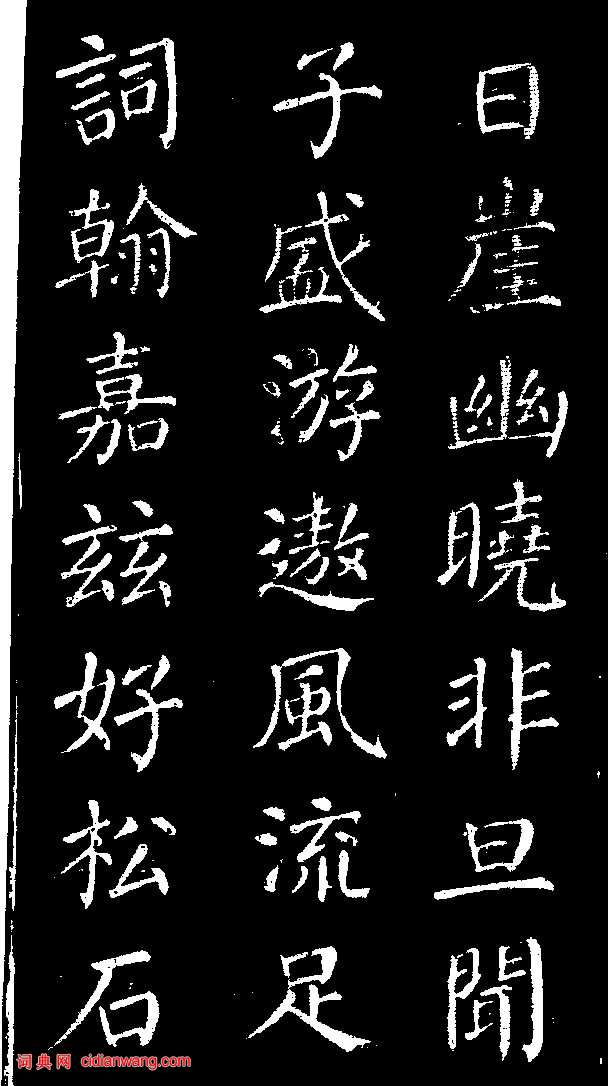 日崖幽曉非旦聞
子盛游遨風流足
詞翰嘉茲好松石
词典网 cidianwang.com